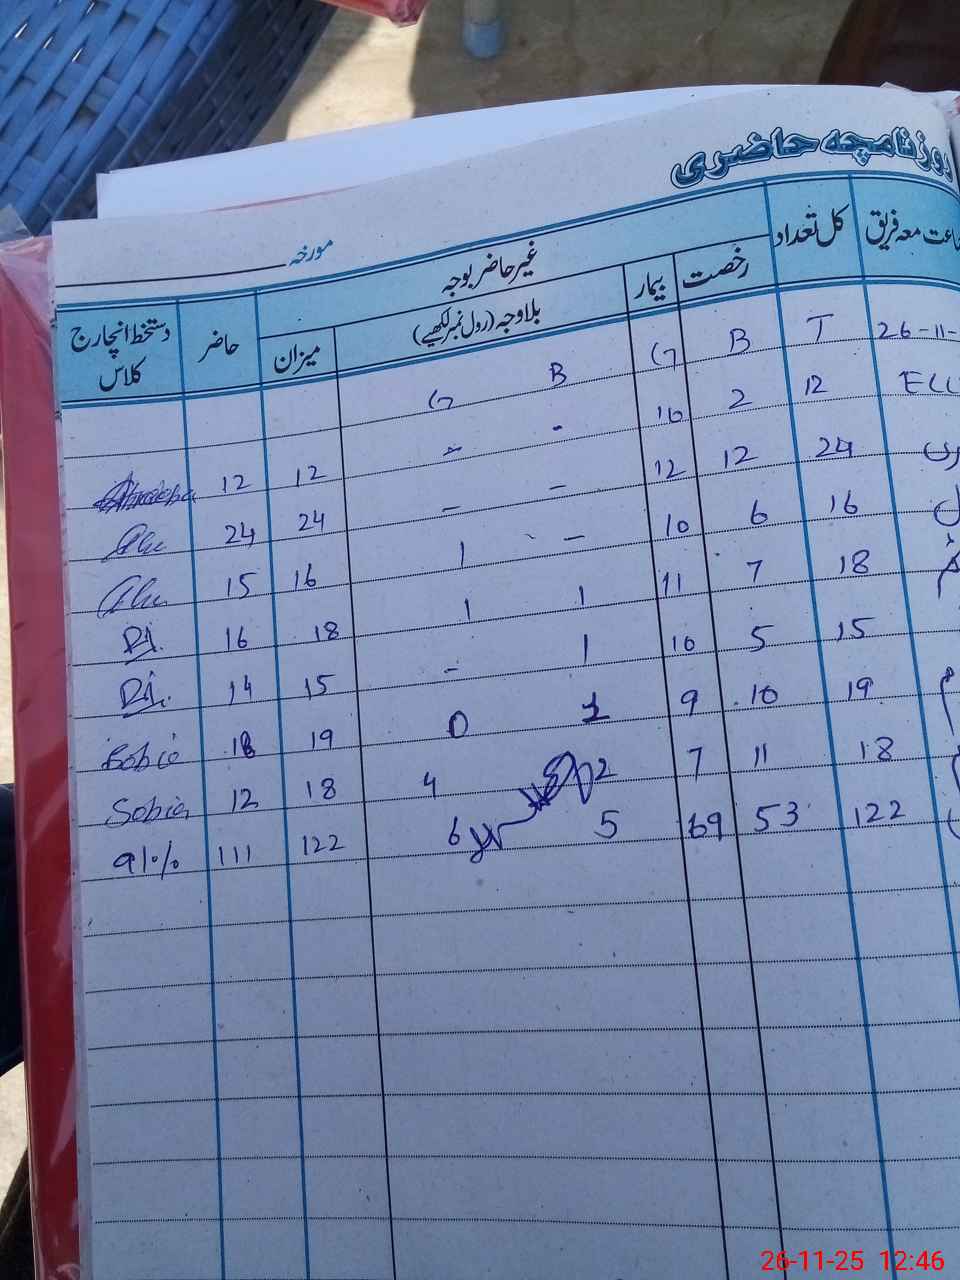 روزنامچہ حاضری
مورخہ
معہ فریق کل تعداد رخصت بیمار غیر حاضر بوجہ حاضر دستخط انچارج کلاس
بلاوجہ (رول نمبر لکھیے) میزان
26-11- T B G B G
12 2 10 - - 12 12
24 12 12 - - 24 24
16 6 10 - 1 16 15
18 7 11 1 1 18 16
15 5 10 1 - 15 14
19 10 9 1 0 19 18
18 11 7 2 4 18 12 Sobia
122 53 69 5 6 122 111 91%
26-11-25 12:46